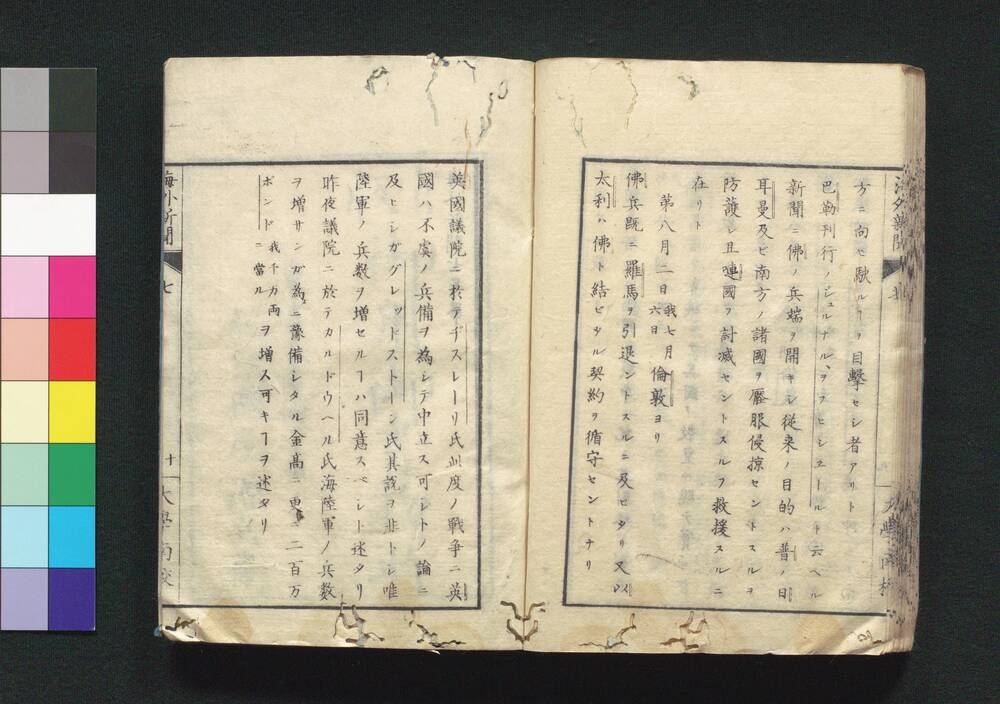 方ニ向セ駛ルヿヲ目撃セシ者アリト
巴勒刊行ノジュルナル、ヲフヒシエールト云ヘル
新聞ニ佛ノ兵端ヲ開キシ從来ノ目的ハ普ノ日
耳曼及ビ南方ノ諸國ヲ壓服侵掠セントスルヲ
防護シ且連國ヲ討滅セントスルヲ救援スルニ
在リト
第八月二日我七月六日倫敦ヨリ
佛兵既ニ羅馬ヲ引退ントスルニ及ビタリ又以
太利ハ佛ト結ビタル契約ヲ循守セントナリ
海外新聞
大學南校
英國議院ニ於テヂスレーリ氏此度ノ戦争ニ英
國ハ不虞ノ兵備ヲ為シテ中立ス可シトノ論ニ
及ヒシガグレッドストーン氏其説ヲ非トシ唯
陸軍ノ兵数ヲ増セルヿハ同意スベシト述タリ
昨夜議院ニ於テカルドウヘル氏海陸軍ノ兵数
ヲ増サンガ為ニ豫備シタル金高ニ更ニ二百万
ポンド我千万両ニ當ルヲ増ス可キヿヲ述タリ
海外新聞
七
十
大學南校